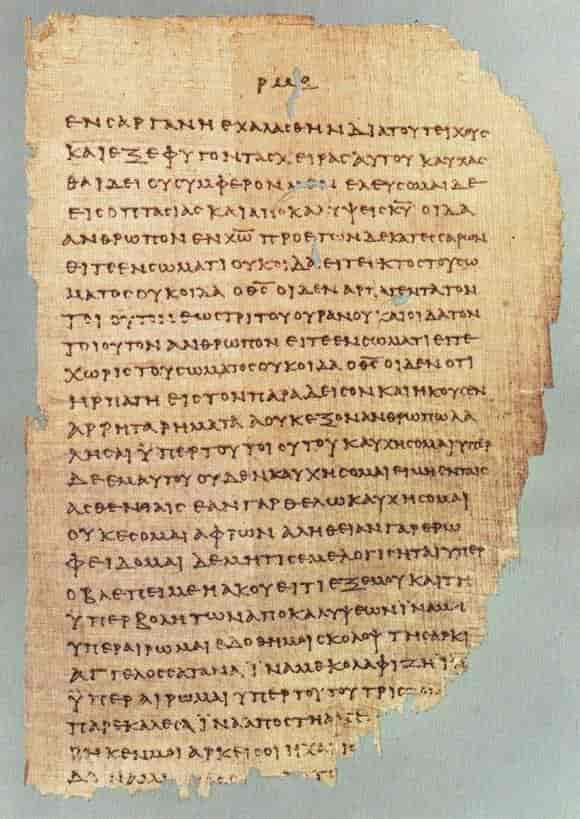 ΡΜΘ
ΕΝϹΑΡΓΑΝΗΕΧΑΛΑϹΘΗΝΔΙΑΤΟΥΤΕΙΧΟΥϹ
ΚΑΙΕΞΕΦΥΓΟΝΤΑϹΧΕΙΡΑϹΑΥΤΟΥΚΑΥΧΑϹ
ΘΑΙΔΕΙΟΥϹΥΜΦΕΡΟΝΜΕΝΕΛΕΥϹΟΜΑΙΔΕ
ΕΙϹΟΠΤΑϹΙΑϹΚΑΙΑΠΟΚΑΛΥΨΕΙϹΚ̅Υ̅ΟΙΔΑ
ΑΝΘΡΩΠΟΝΕΝΧ̅Ω̅ΠΡΟΕΤΩΝΔΕΚΑΤΕϹϹΑΡΩΝ
ΕΙΤΕΕΝϹΩΜΑΤΙΟΥΚΟΙΔΑΕΙΤΕΕΚΤΟϹΤΟΥϹΩ
ΜΑΤΟϹΟΥΚΟΙΔΑΟΘ̅Ϲ̅ΟΙΔΕΝΑΡΠΑΓΕΝΤΑΤΟΝ
ΤΟΙΟΥΤΟΝΕΩϹΤΡΙΤΟΥΟΥΡΑΝΟΥΚΑΙΟΙΔΑΤΟΝ
ΤΟΙΟΥΤΟΝΑΝΘΡΩΠΟΝΕΙΤΕΕΝϹΩΜΑΤΙΕΙΤΕ
ΧΩΡΙϹΤΟΥϹΩΜΑΤΟϹΟΥΚΟΙΔΑΟΘ̅Ϲ̅ΟΙΔΕΝΟΤΙ
ΗΡΠΑΓΗΕΙϹΤΟΝΠΑΡΑΔΕΙϹΟΝΚΑΙΗΚΟΥϹΕΝ
ΑΡΡΗΤΑΡΗΜΑΤΑΑΟΥΚΕΞΟΝΑΝΘΡΩΠΩΛΑ
ΛΗϹΑΙΫΠΕΡΤΟΥΤΟΙΟΥΤΟΥΚΑΥΧΗϹΟΜΑΙΥΠΕΡ
ΔΕΕΜΑΥΤΟΥΟΥΔΕΝΚΑΥΧΗϹΟΜΑΙΕΙΜΗΕΝΤΑΙϹ
ΑϹΘΕΝΕΙΑΙϹΕΑΝΓΑΡΘΕΛΩΚΑΥΧΗϹΟΜΑΙ
ΟΥΚΕϹΟΜΑΙΑΦΡΩΝΑΛΗΘΕΙΑΝΓΑΡΕΡΩ
ΦΕΙΔΟΜΑΙΔΕΜΗΤΙϹΕΜΕΛΟΓΙϹΗΤΑΙΥΠΕΡ
ΟΒΛΕΠΕΙΜΕΗΑΚΟΥΕΙΤΙΕΞΕΜΟΥΚΑΙΤΗ
ΫΠΕΡΒΟΛΗΤΩΝΑΠΟΚΑΛΥΨΕΩΝΪΝΑΜΗ
ΥΠΕΡΑΙΡΩΜΑΙΕΔΟΘΗΜΟΙϹΚΟΛΟΨΤΗϹΑΡΚΙ
ΑΓΓΕΛΟϹϹΑΤΑΝΑΪΝΑΜΕΚΟΛΑΦΙΖΗΪΝΑ
ΫΠΕΡΑΙΡΩΜΑΙΥΠΕΡΤΟΥΤΟΥΤΡΙϹ
ΠΑΡΕΚΑΛΕϹΑΪΝΑΑΠΟϹΤΗΑΠΕ
ΡΗΚΕΝΜΟΙΑΡΚΕΙϹΟΙΗΧΑΡΙϹ